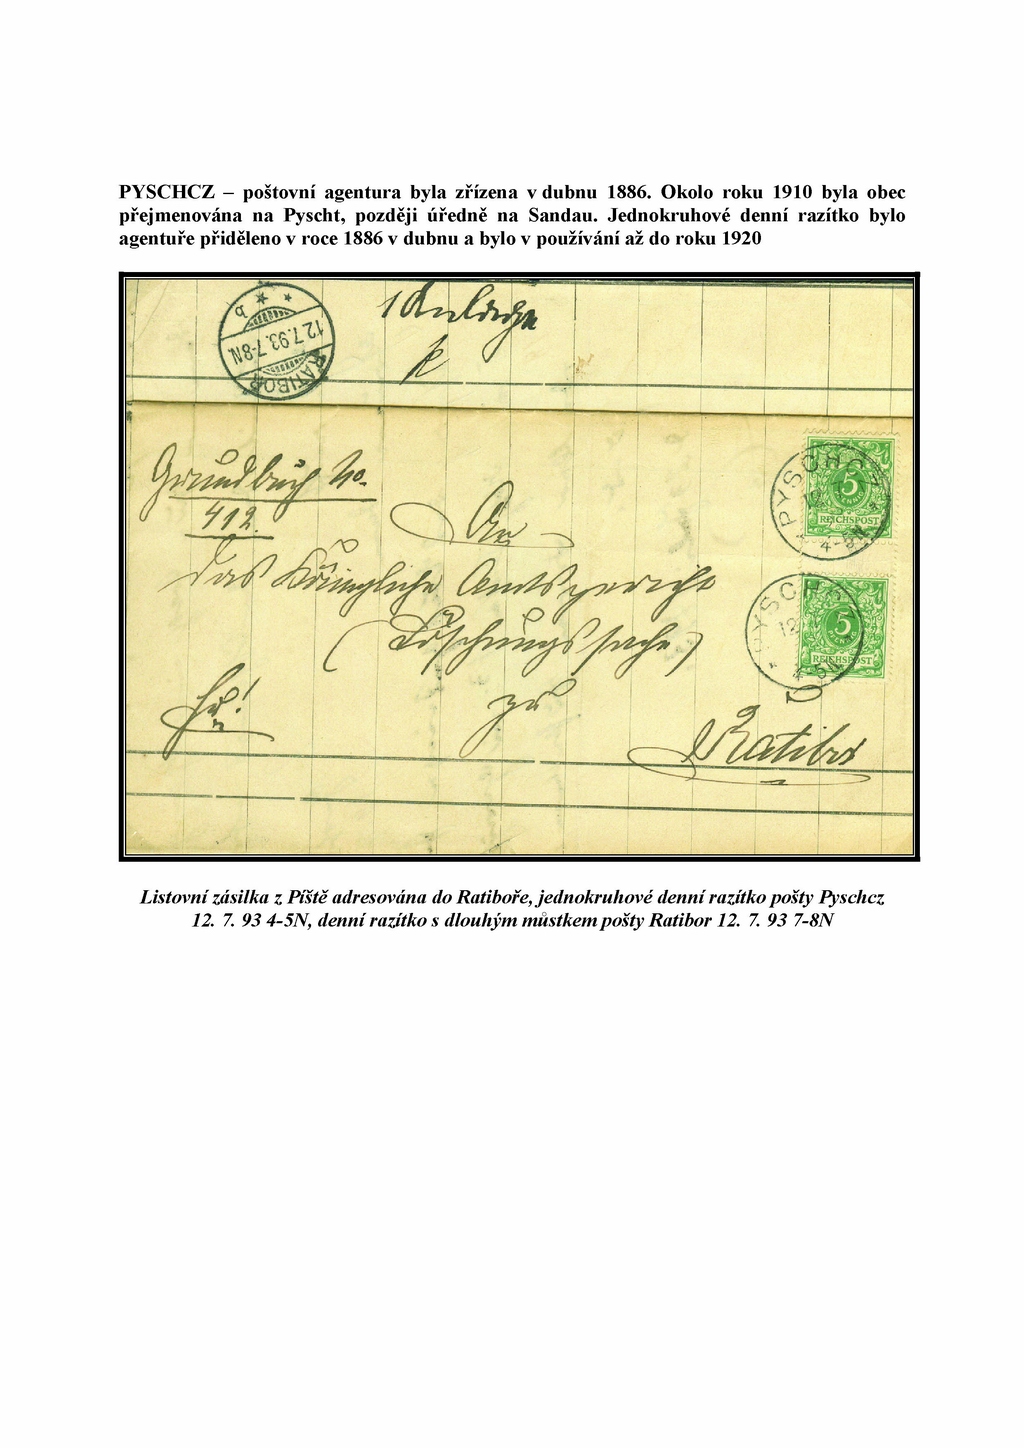 PYSCHCZ – poštovní agentura byla zřízena v dubnu 1886. Okolo roku 1910 byla obec
přejmenována na Pyscht, později úředně na Sandau. Jednokruhové denní razítko bylo
agentuře přiděleno v roce 1886 v dubnu a bylo v používání až do roku 1920
b
12.7.93.7-8N
RATIBOR
1 Anlage
Grundbuch No.
412.
An
das Königliche Amtsgericht
(Löschungssache)
zu
Ratibor
PYSCHCZ
5
PFENNIG
REICHSPOST
4-5N
PYSCHCZ
12
5
PFENNIG
REICHSPOST
4-5N
Listovní zásilka z Píště adresována do Ratiboře, jednokruhové denní razítko pošty Pyschcz
12. 7. 93 4-5N, denní razítko s dlouhým můstkem pošty Ratibor 12. 7. 93 7-8N